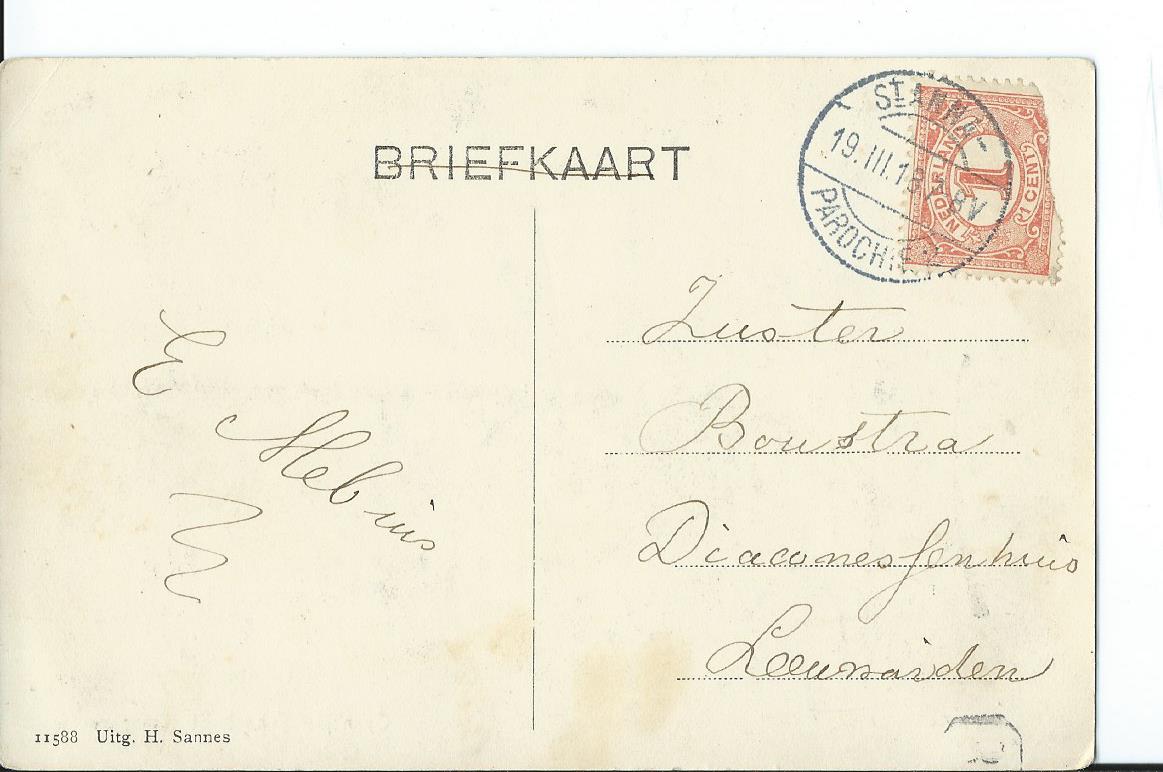 BRIEFKAART
ST ANNA-
19.III.13 7-8V
PAROCHIE
NEDERLAND
1
1 CENT
Zuster
Boustra
Diaconessenhuis
Leeuwarden
E Mebius
11588 Uitg. H. Sannes